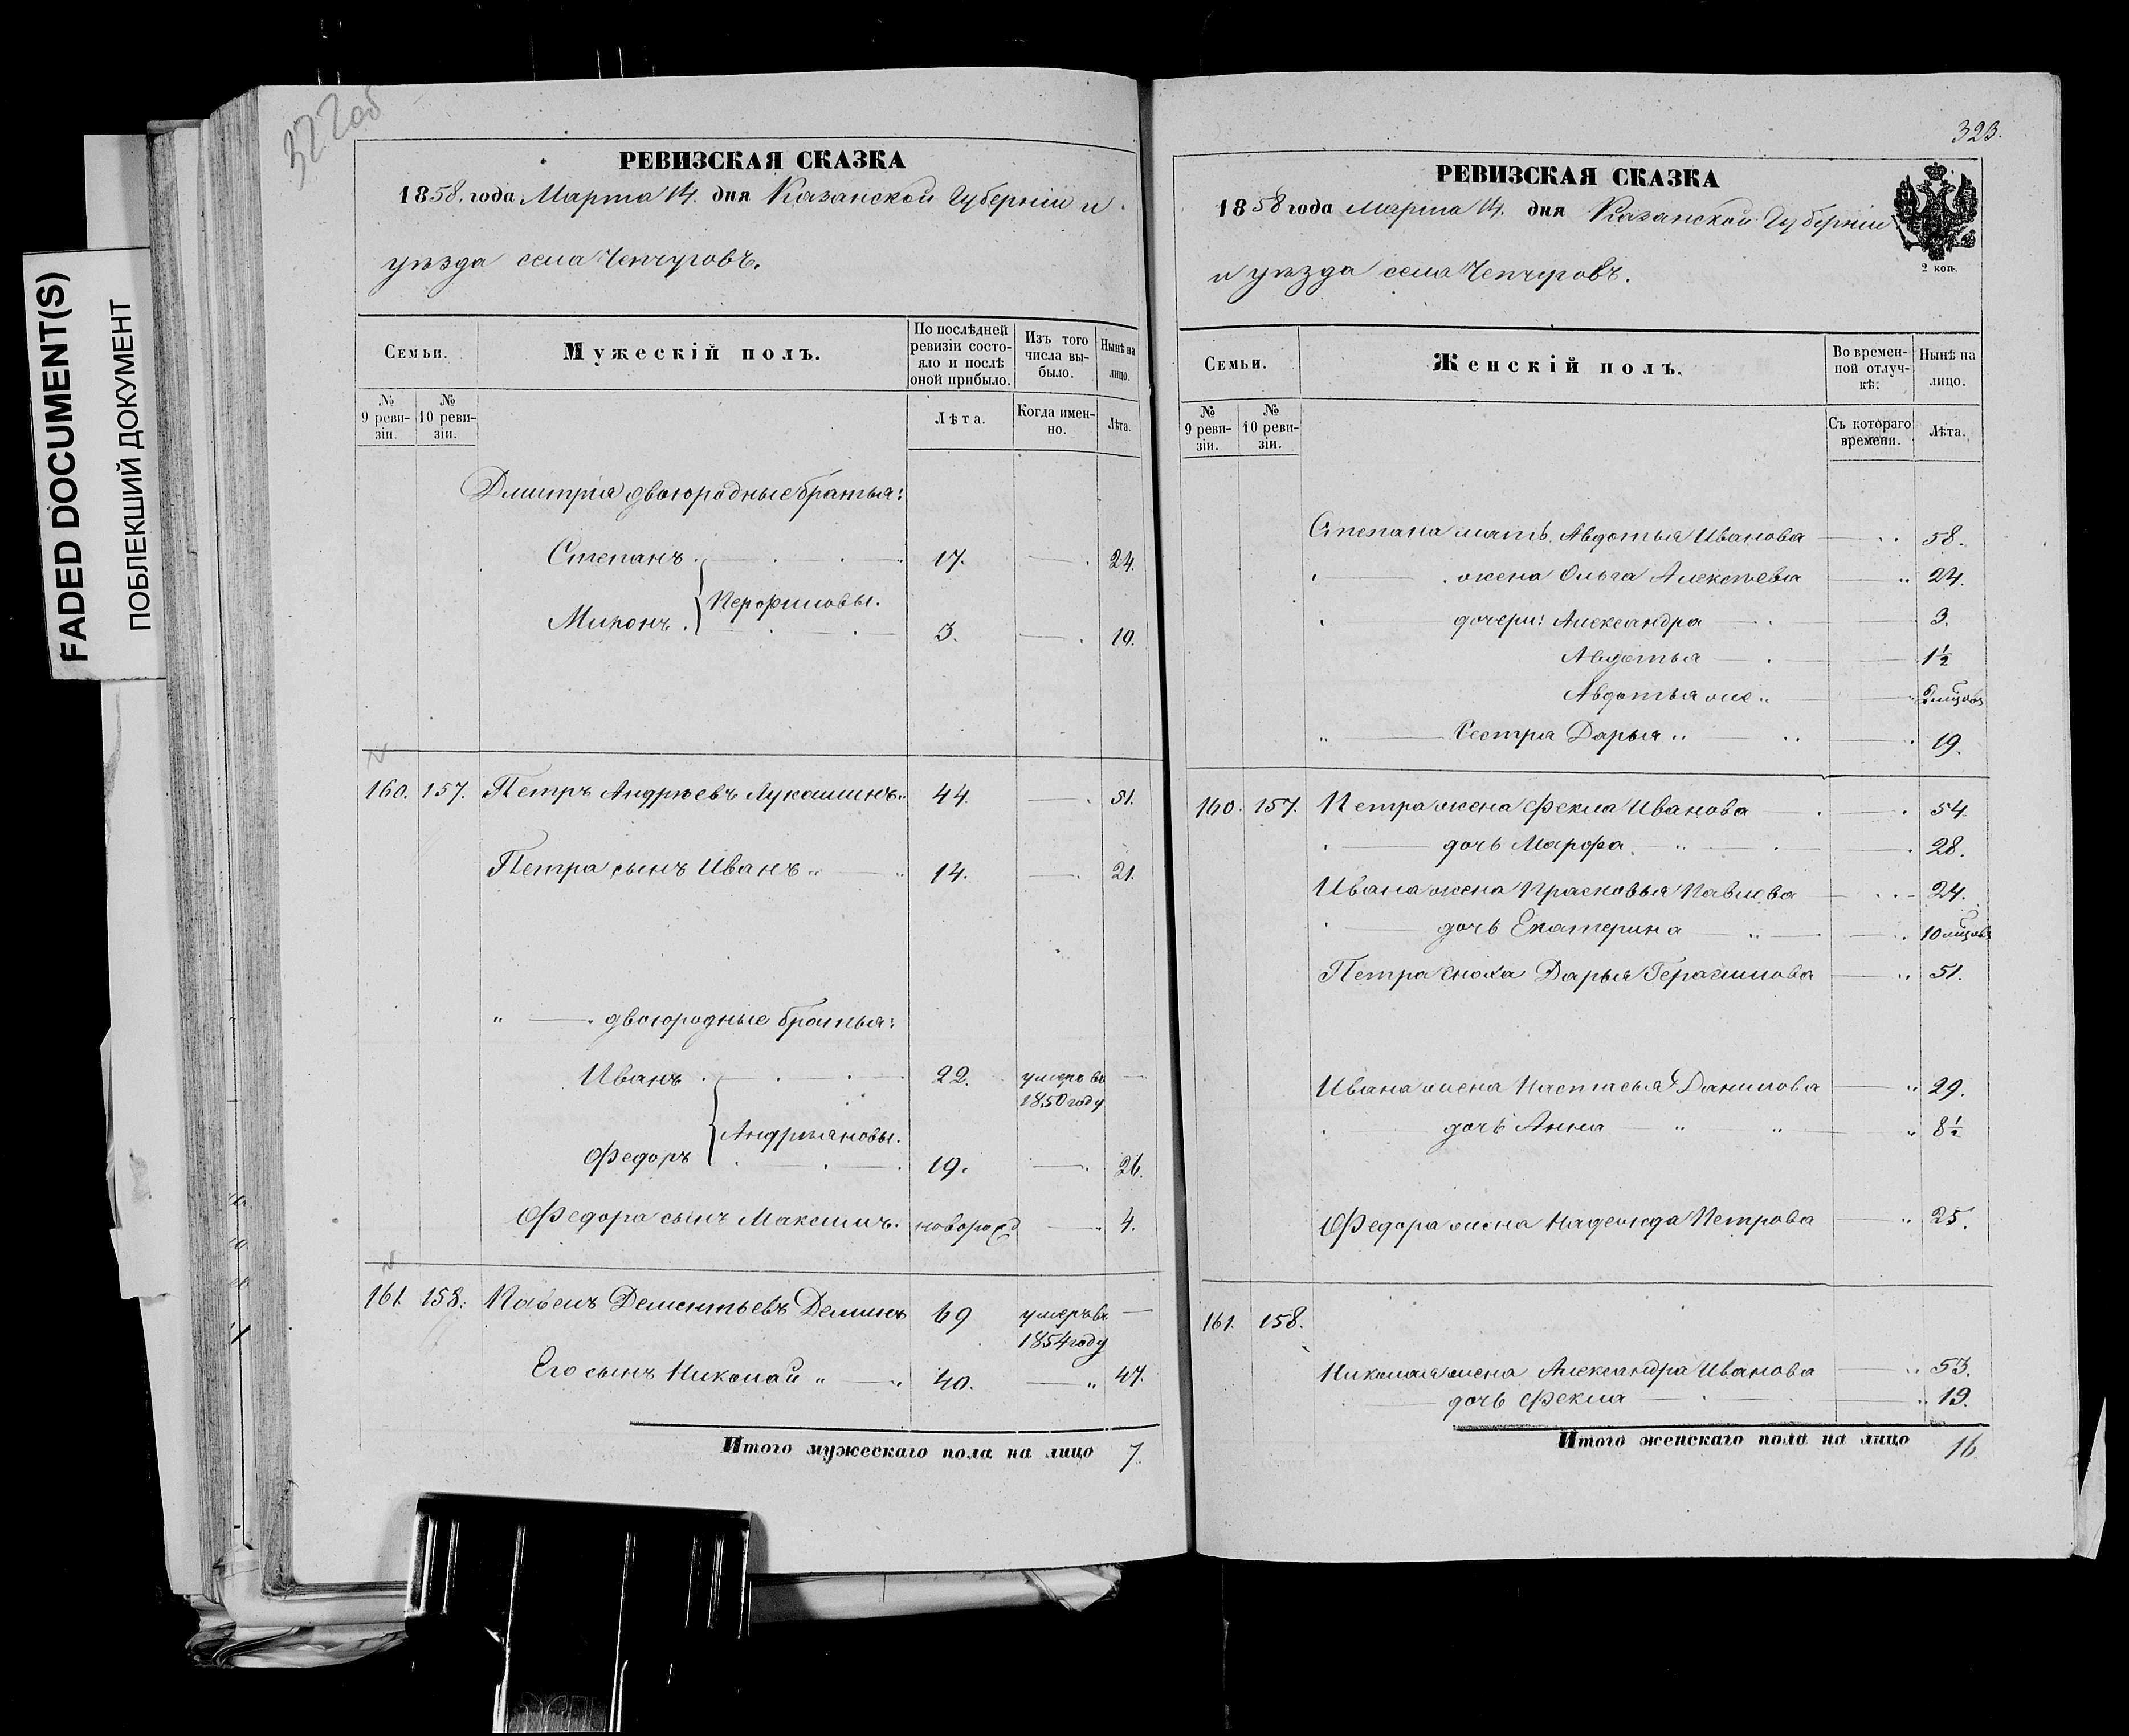 FADED DOCUMENT(S)
ПОБЛЕКШИЙ ДОКУМЕНТ
322 об
РЕВИЗСКАЯ СКАЗКА
1858. года Марта 14. дня Казанской Губерніи и
уѣзда села Чепчуговъ.
Семьи.
Мужескій полъ.
По послѣдней ревизіи состояло и послѣ оной прибыло.
Изъ того числа выбыло.
Нынѣ на лицо.
№ 9 ревизіи.
№ 10 ревизіи.
Лѣта.
Когда именно.
Лѣта.
Дмитрія двоюродные братья:
Степанъ 17. 24.
Миронъ 3. 10.
160. 157. Петръ Андреевъ Лукашинъ 44. 51.
Петра сынъ Иванъ 14. 21.
" двоюродные братья:
Иванъ 22. умеръ въ 1850 году
Андреяновы.
Федоръ 19. 26.
Федора сынъ Максимъ новорожд 4.
161. 158. Павелъ Дементьевъ Деминъ 69 умеръ въ 1854 году
Его сынъ Николай 40. 47.
Итого мужескаго пола на лицо 7.
323.
РЕВИЗСКАЯ СКАЗКА
1858 года Марта 14. дня Казанской Губерніи
и уѣзда села Чепчуговъ.
2 коп.
Семьи.
Женскій полъ.
Во временной отлучкѣ.
Нынѣ на лицо.
№ 9 ревизіи.
№ 10 ревизіи.
Съ котораго времени.
Лѣта.
Степана мать Авдотья Иванова 58.
жена Ольга Алексѣева 24.
дочери: Александра 3.
Авдотья 1½
Авдотья же 2 мѣсцовъ
" Сестра Дарья 19.
160. 157. Петра жена Фекла Иванова 54.
дочь Марфа 28.
Ивана жена Прасковья Павлова 24.
дочь Екатерина 10 мѣсцовъ
Петра сноха Дарья Герасимова 51.
Ивана жена Настасья Данилова 29.
дочь Анна 8½
Федора жена Надежда Петрова 25.
161. 158.
Николая жена Александра Иванова 53.
дочь Фекла 19.
Итого женскаго пола на лицо 16